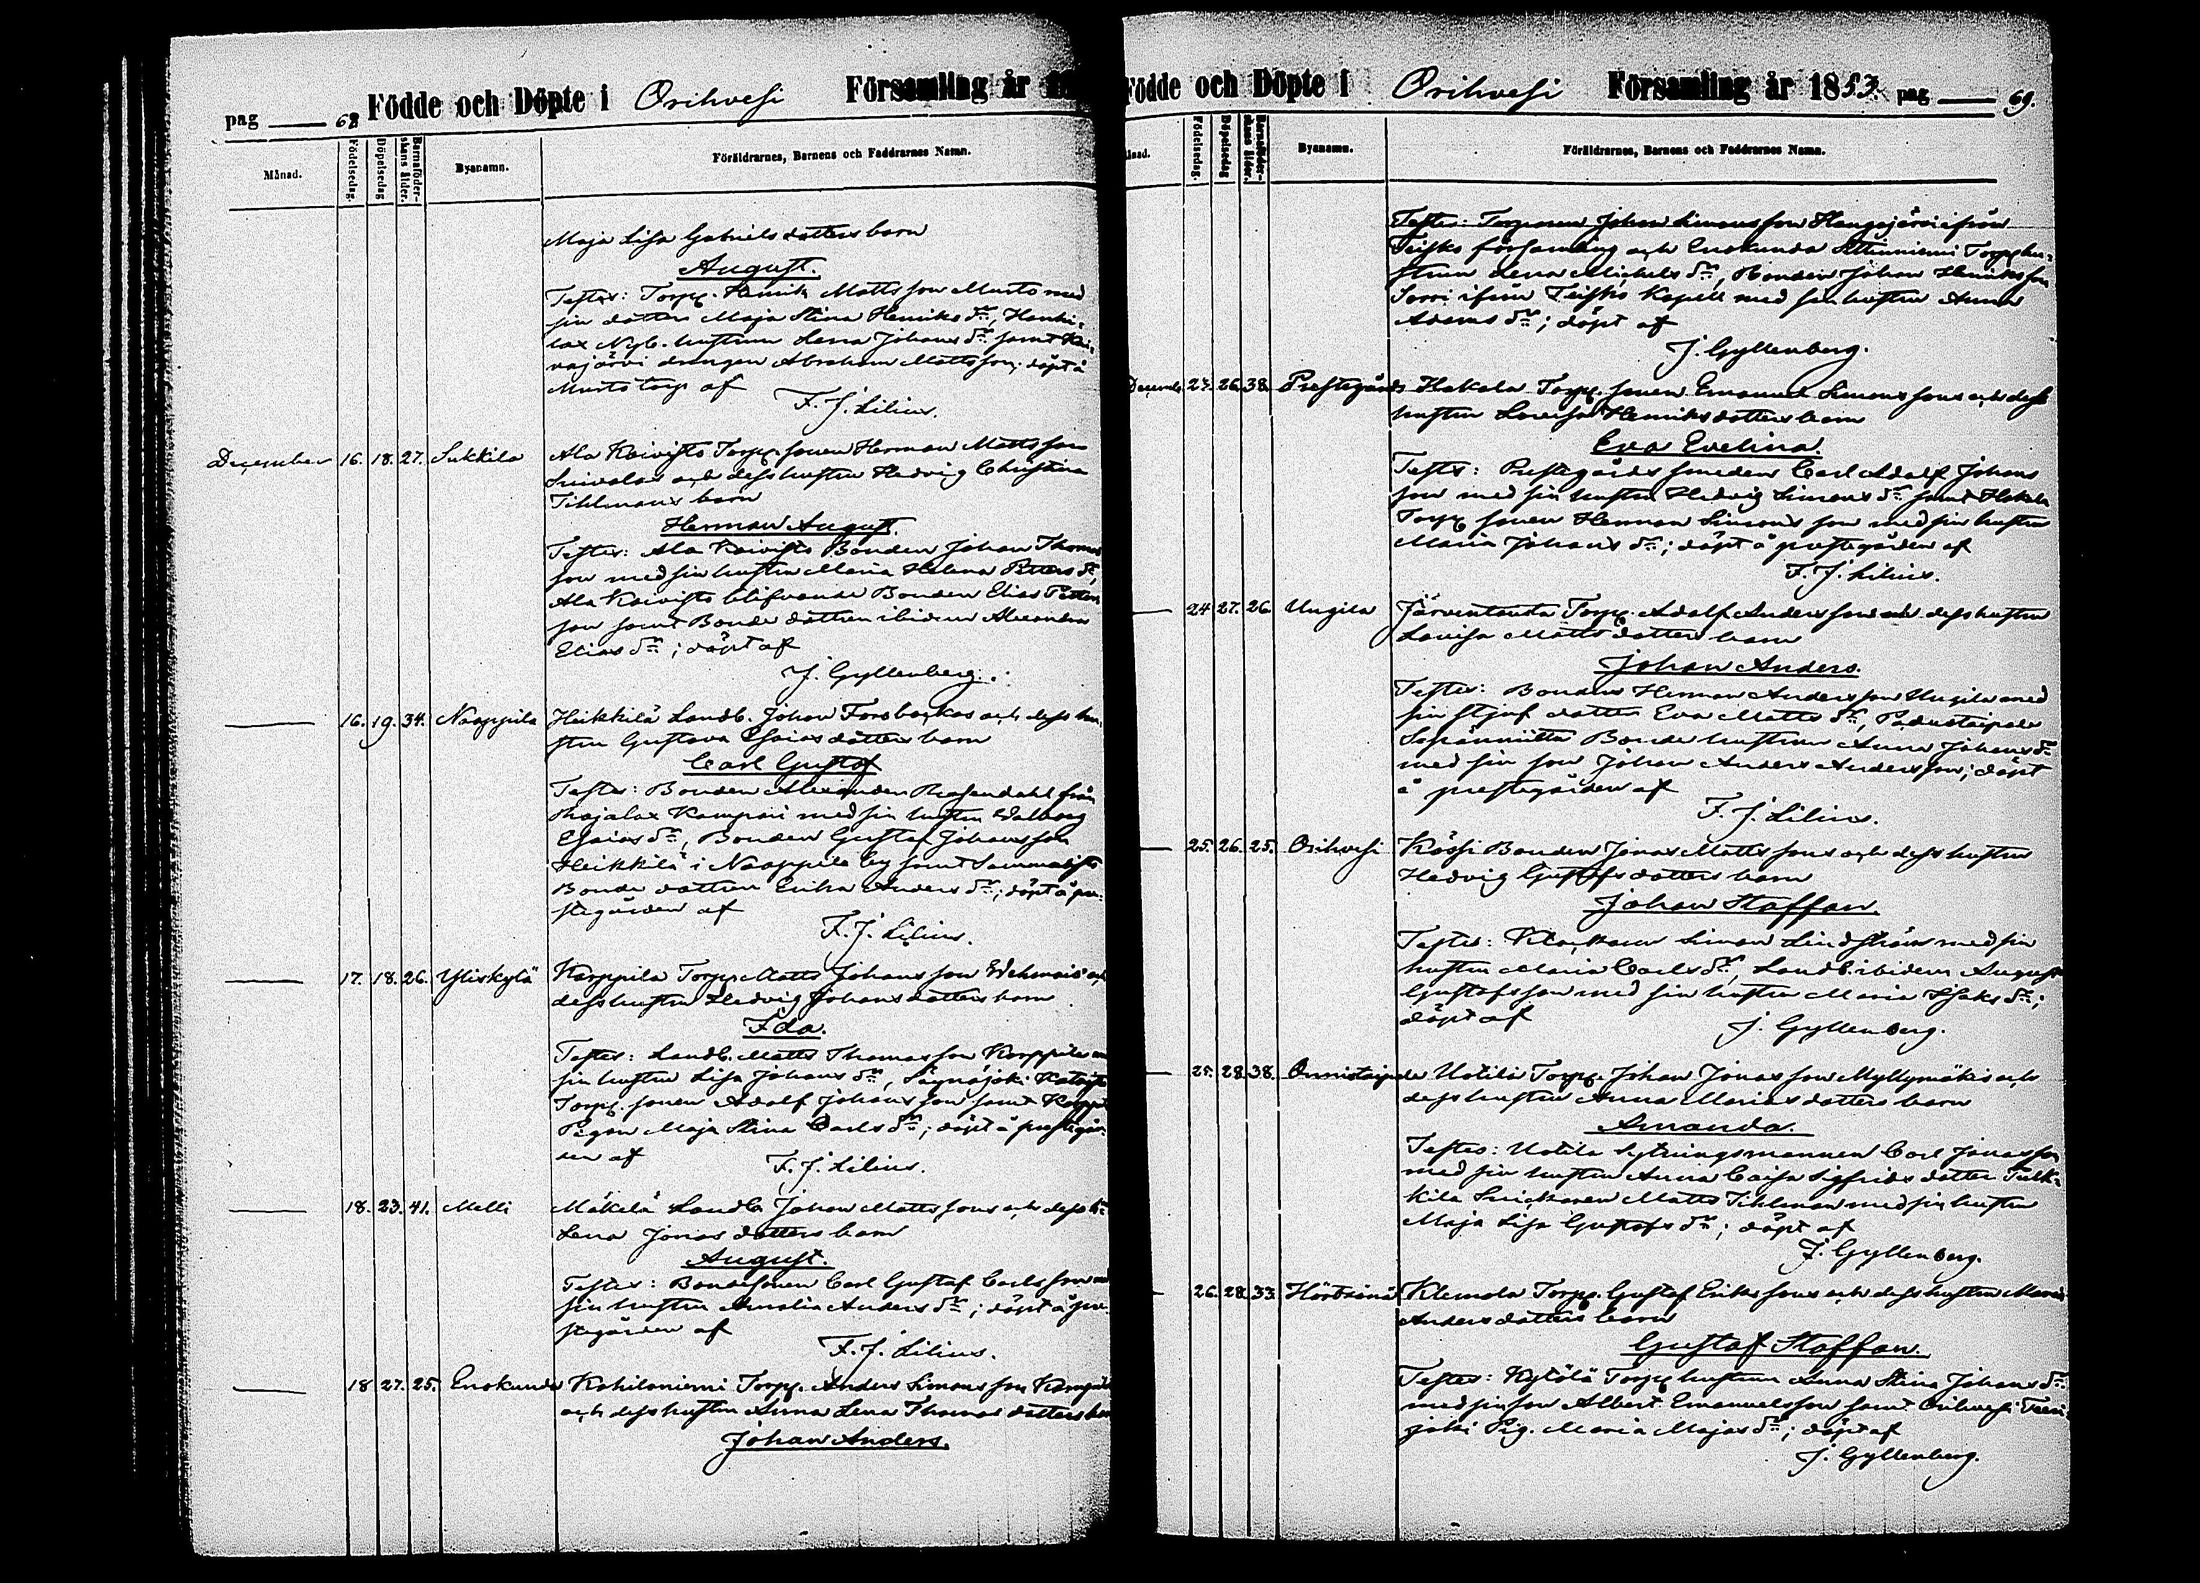 pag 68 Födde och Döpte i Orihvesi Församling år
Månad. Födelsedag. Döpelsedag Barnaföderskans ålder. Bysnamn. Föräldrarnes, Barnens och Faddrarnes Namn.
Maja Lisa Gabrielsdotters barn
August.
Testes: Torp. Henrik Mattsson Musto med
sin dotter Maja Stina Henriks dr,
Nyb. hustrun Lena Johans dr samt
drängen Abraham Mattsson; döpt å
Musto torp af
F. J. Lilius.
December 16. 18. 27. Sukkila Ala Koivisto Torp. sonen Herman Mattsson
och dess hustru Hedvig Christina
Tihlmans barn
Herman August.
Testes: Ala Koivisto Bonden Johan Thomas
son med sin hustru Maria Helena Petters dr,
Ala Koivisto blifvande Bonden Elias Petters
son samt Bonde dottren ibidem Alexandra
Elias dr; döpt af
J. Gyllenberg.
16. 19. 34. Naappila Heikkilä Landb. Johan Forsbackas och dess hu-
stru Gustava Esaias dotters barn
Carl Gustaf
Testes: Bonden Alexander Rosendahl från
med sin hustru Walborg
Esaias dr, Bonden Gustaf Johansson
Heikkilä i Naappila by samt
Bonde dottren Erika Anders dr; döpt å pre-
stegården af
F. J. Lilius.
17. 18. 26. Yliskylä Karppila Torp. Matts Johansson Wehmais och
dess hustru Hedvig Johansdotters barn
Ida.
Testes: Landb. Matts Thomasson Karppila
sin hustru Lisa Johans dr,
Torp. sonen Adolf Johansson samt
Pigan Maja Stina Carls dr; döpt å prestegår-
den af
F. J. Lilius.
18. 23. 41. Melli Mäkelä Landb. Johan Mattssons och dess h:
Lena Jonas dotters barn
August.
Testes: Bondesonen Carl Gustaf Carlsson
sin hustru Amalia Anders dr; döpt å pre-
stegården af
F. J. Lilius.
18 27. 25. Enokunda Kohiloniemi Torp. Anders Simonsson
och dess hustru Anna Lena Thomas dotters
Johan Anders.
Födde och Döpte i Orihvesi Församling år 1853. pag 69.
Födelsedag. Döpelsedag Barnaföderskans ålder. Bysnamn. Föräldrarnes, Barnens och Faddrarnes Namn.
Testes: Torparen Johan Simonsson Haugajärvi ifrån
Teisko församling och Enokunda Torp hu-
strun Lena Michels dr, Bonden Johan Henriksson
Sorri ifrån Teisko Kapell med sin hustru Anna
Adams dr; döpt af
J. Gyllenberg.
23. 26. 38. Prestegårds Hakala Torp. sonen Emanuel Simonssons och dess
hustru Lovisa Henriksdotters barn
Eva Evelina.
Testes: Prestegårds smeden Carl Adolf Johans
son med sin hustru Hedvig Simons dr samt Hakala
Torp sonen Herman Simons son med sin hustru
Maria Johans dr; döpt å prestegården af
F. J. Lilius.
24 27. 26. Uugila Järventausta Torp. Adolf Anderssons och dess hustru
Lovisa Mattsdotters barn
Johan Anders.
Testes: Bonden Herman Andersson Uugila med
sin stjuf dotter Eva Matts dr, Padustaipale
Bonde hustrun Anna Johans dr
med sin son Johan Anders Andersson; döpt
å prestegården af
F. J. Lilius.
25. 26. 25. Orihvesi Kössi Bonden Jonas Mattssons och dess hustru
Hedvig Gustafsdotters barn
Johan Staffan.
Testes: Klockaren Simon Lindström med sin
hustru Maria Carls dr, Landb. ibidem August
Gustafsson med sin hustru Maria Isaks dr;
döpt af
J. Gyllenberg.
25. 28. 38. Onnistaipale Uotila Torp. Johan Jonasson Myllymäkis och
dess hustru Anna Mariasdotters barn
Amanda.
Testes: Uotila Sytningsmannen Carl Jonasson
med sin hustru Anna Caisa Sigfrids dotter
Snickaren Matts Tihlman med sin hustru
Maja Lisa Gustafs dr; döpt af
J. Gyllenberg.
26. 28. 33. Klemola Torp. Gustaf Erikssons och dess hustru Maria
Andersdotters barn
Gustaf Staffan.
Testes: Kytölä Torp hustrun Anna Stina Johans dr
med sin son Albert Emanuelsson samt Orihvesi
Pig. Maria Majas dr; döpt af
J. Gyllenberg.